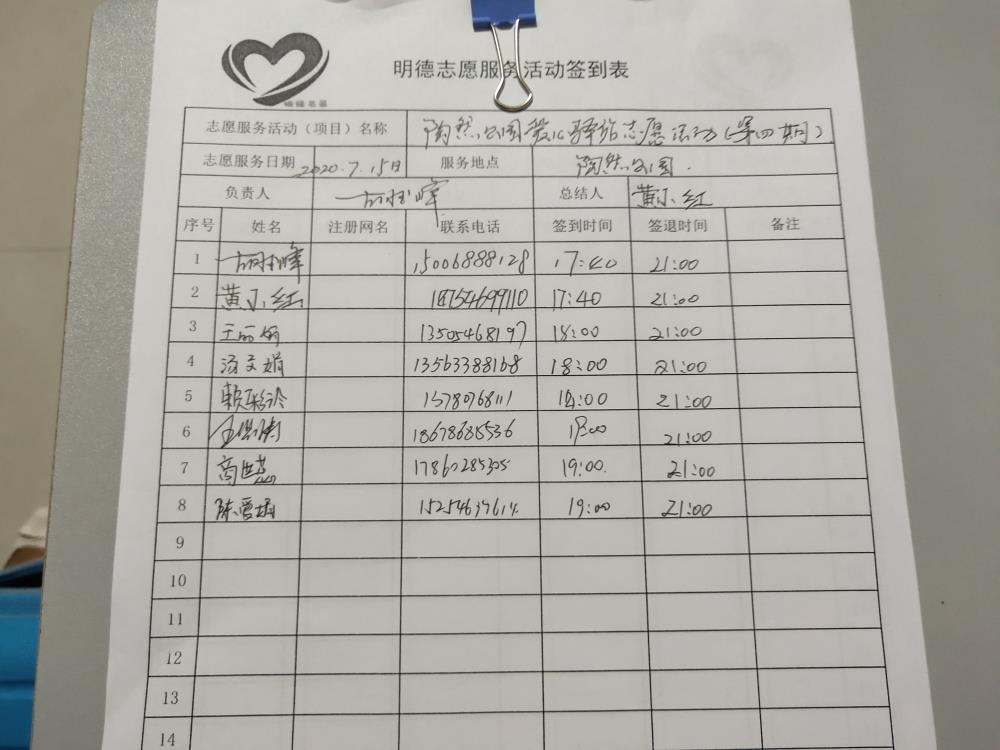 明德志愿服务活动签到表
志愿服务活动（项目）名称 陶然公园 驿站志愿活动（第四期）
志愿服务日期 2020.7.15日 服务地点 陶然公园.
负责人 总结人 黄小红
序号 姓名 注册网名 联系电话 签到时间 签退时间 备注
1 15006888128 17:40 21:00
2 黄小红 18754699110 17:40 21:00
3 王丽娟 13505468197 18:00 21:00
4 汤文娟 13563388168 18:00 21:00
5 18:00 21:00
6 18678685536 21:00
7 17860285305 19:00 21:00
8 19:00 21:00
9
10
11
12
13
14